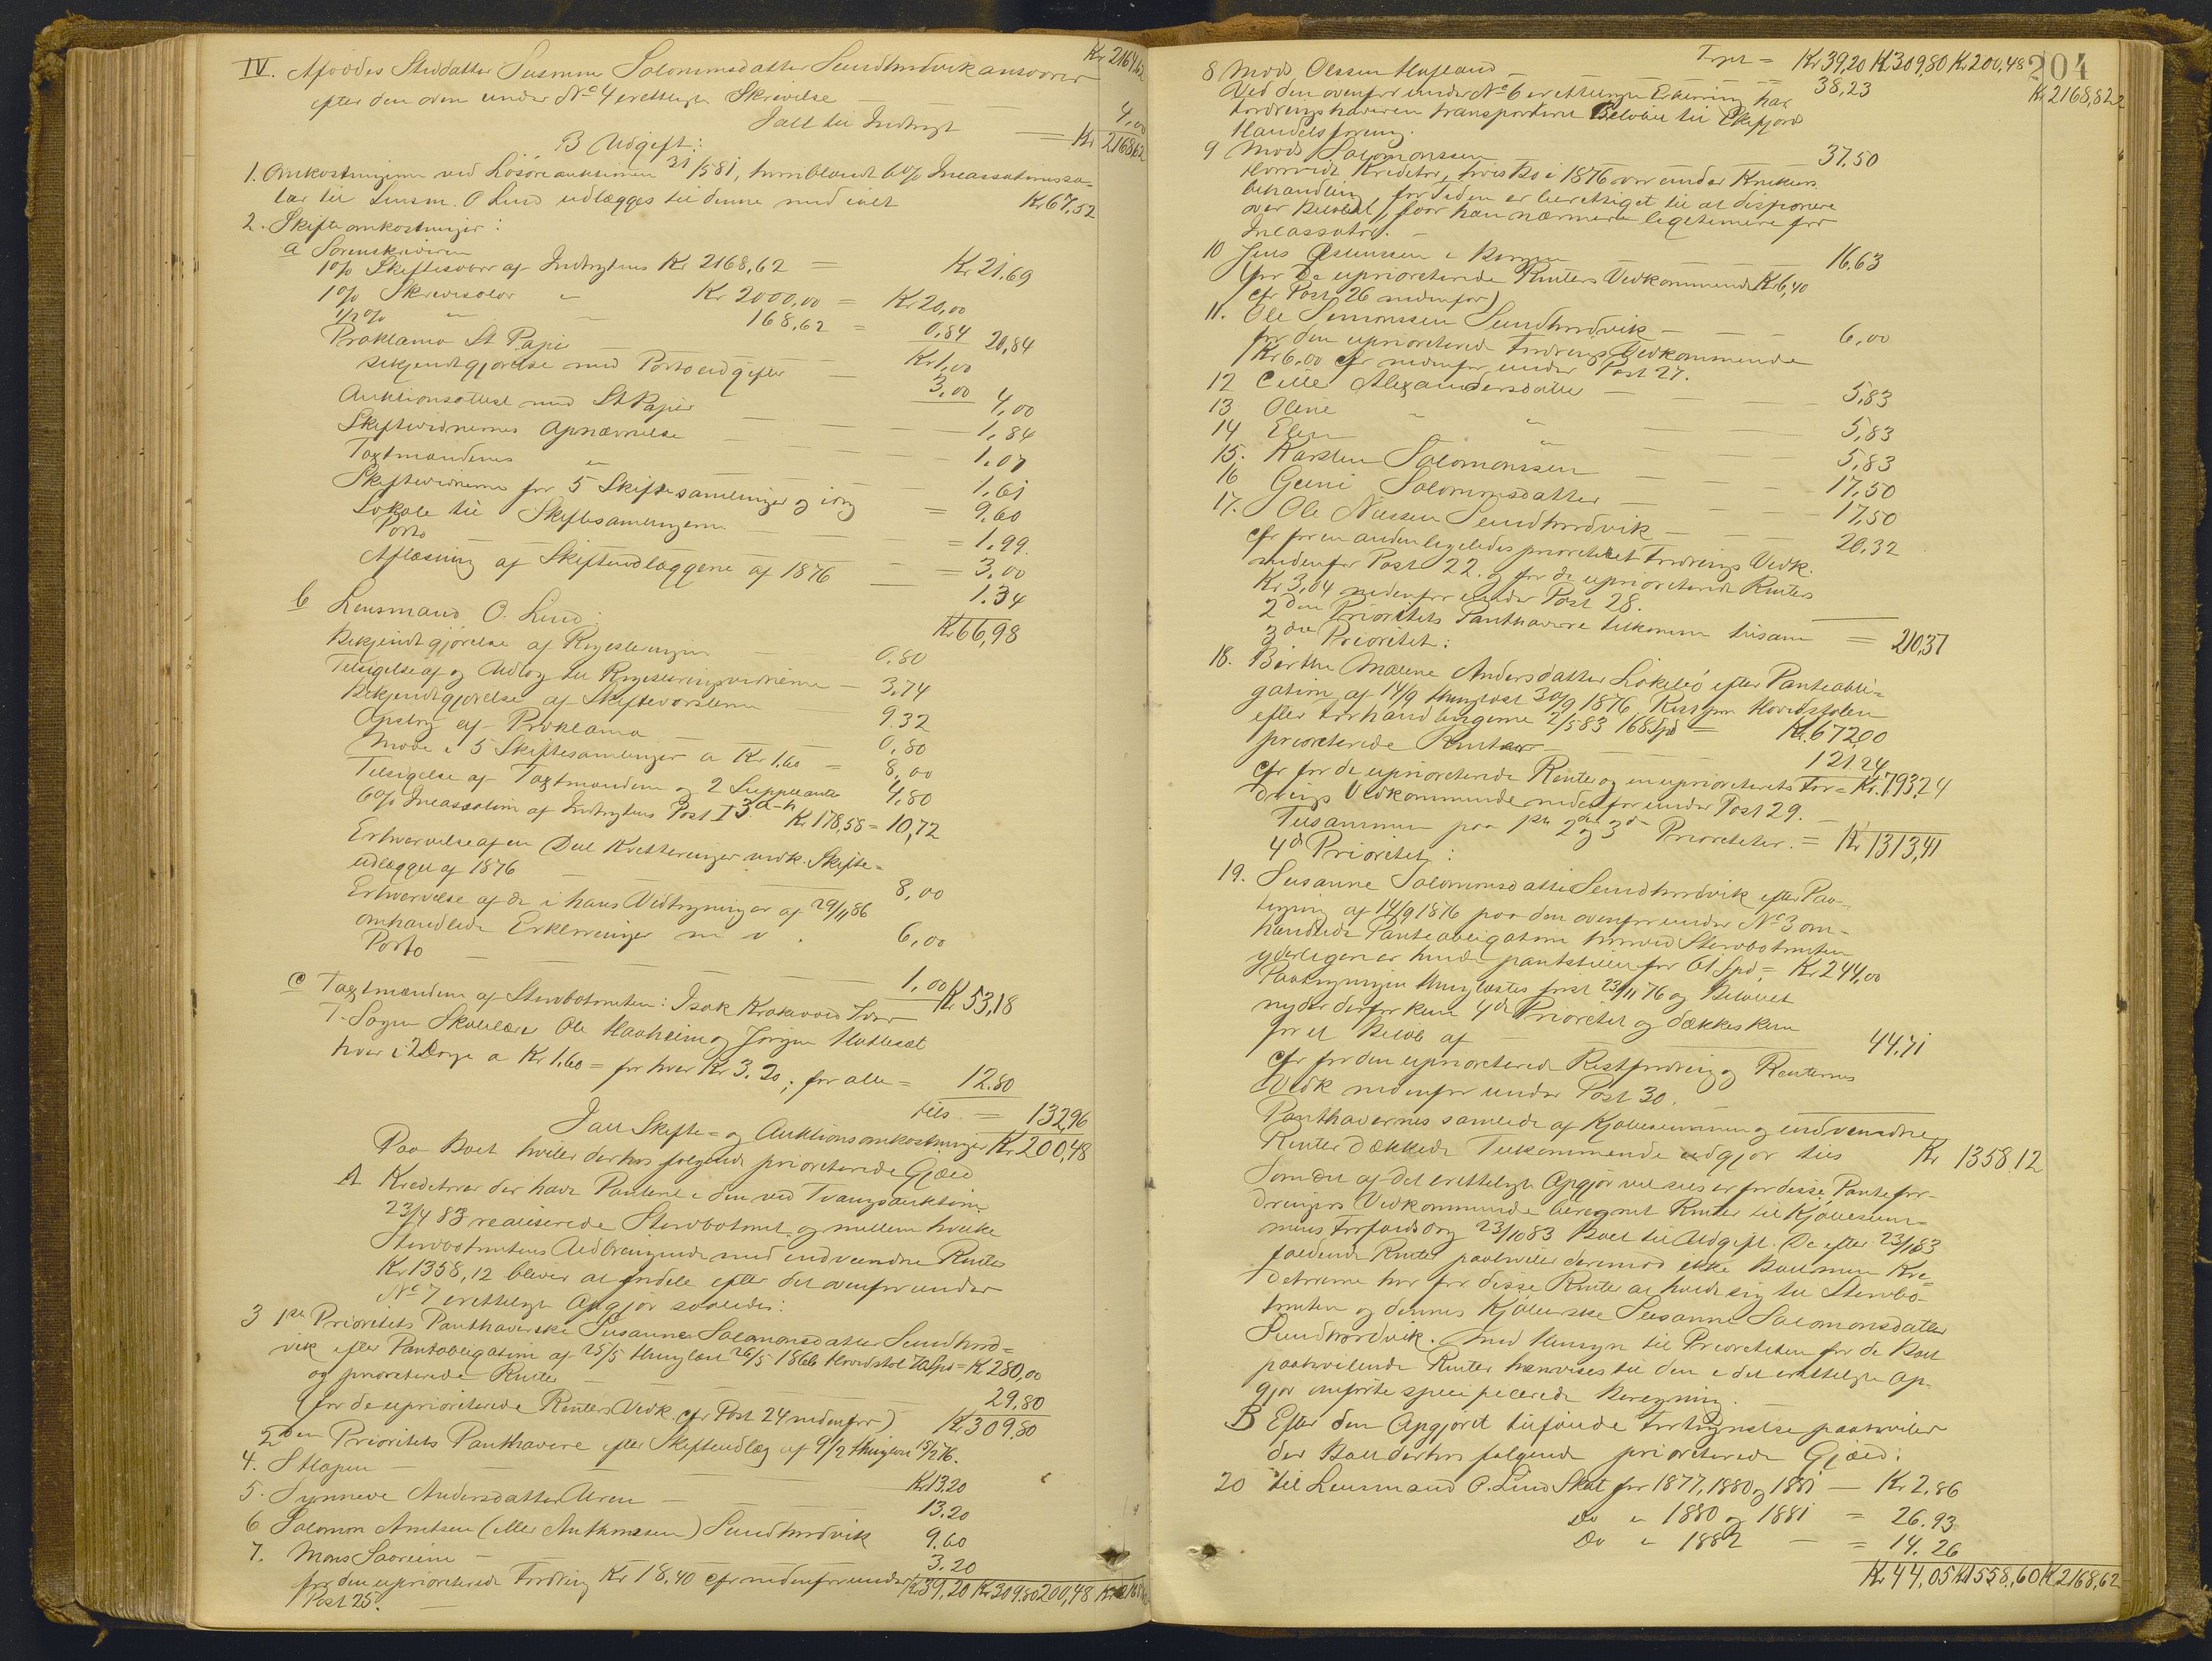 Kr 2164,62
IV. Afdødes Steddatter Susanne Salomonsdatter Sundhordvik ansvarer
efter den oven under No 4 erettelagte Skrivelse — 4,00
Ialt til Indtægt = Kr 2168,62
B Udgift:
1. Omkostningerne ved Løsøreauktionen 31/5 81, hvoriblandt 6% Incassationssa-
lær til Lensm. O Lund udlægges til denne med ialt Kr 67,52
2. Skifteomkostninger:
a Sorenskriveren
1% Skiftesalær af Indtægtens Kr 2168,62 = Kr 21,69
1% Skriversalær " Kr 2000,00 = Kr 20,00
1/2% " " 168,62 = 0,84 20,84
Proklama St Papir — Kr 1,00
Bekjendtgjørelse med Portoudgifter — 3,00 4,00
Auktionsattest med St Papir — 1,84
Skiftevidnernes Opnævnelse — 1,07
Taxtmændenes " — 1,61
Skiftevidnerne for 5 Skiftesamlinger og iøvrig = 9,60
Lokale til Skiftesamlingerne = 1,99
Porto — = 3,00
Aflæsning af Skifteudlæggene af 1876 — 1.34
Kr 66,98
b Lensmand O. Lund:
Bekjendtgjørelse af Registreringen — 0,80
Tilsigelse af og Udlæg til Registreringsvidnerne — 3,74
Bekjendtgjørelse af Skiftevarslerne 9.32
Opslag af Proklama — 0,80
Møde i 5 Skiftesamlinger a Kr 1.60 = 8,00
Tilsigelse af Taxtmændene og 2 Suppleanter 4,80
6% Incassation af Indtægtens Post I 3 a-h Kr 178,58 = 10,72
Erhvervelse af en Del Kvitteringer vedk. Skifte-
udlægget af 1876 — 8,00
Erhvervelse af de i hans Vedtegninger af 29/11 86
omhandlede Erklæringer m v. 6,00
Porto — 1,00 Kr 53,18
c Taxtmændene af Stervbotomten: Isak
T. Sagen Skolelærer Ole Haaheim og Jørgen
hver i 2 Dage a Kr 1.60 = for hver Kr 3.20; for alle = 12.80
tils. = 132,96
Ialt Skifte- og Auktionsomkostninger Kr 200,48
Paa Boet hviler derhos følgende prioriterede Gjæld
A Kreditorer der have Panteret i den ved Tvangsauktion
23/4 83 realiserede Stervbotomt og mellem hvilke
Stervbotomtens Udbringende med indvundne Renter
Kr 1358,12 bliver at fordele efter det ovenfor under
No 7 erettelagte Opgjør saaledes:
3 1ste Prioritets Panthaverske Susanne Salomonsdatter Sundhord-
vik efter Pantobligation af 25/5 thinglæst 26/5 1866 Hovedstol 70 Spd = Kr 280,00
og prioriterede Renter — 29,80
(for de uprioriterede Renters Vedk. cfr Post 24 nedenfor) Kr 309.80
2den Prioritets Panthavere efter Skifteudlæg af 9/2 thinglæst 15/2 76.
4. S — Kr 13.20
5. Synneve Andersdatter — 13.20
6 Salomon (eller ) Sundhordvik 9.60
7. Mons — 3.20
for den uprioriterede Fordring Kr 18,40 cfr nedenfor under Kr 39,20 Kr 309.80 200,48 Kr 2168,62
Post 25.
204
Trpt = Kr 39,20 Kr 309,80 Kr 200,48 Kr 2168,62
8 Mads Olsen — 38,23
Ved den ovenfor under No 6 erettelagte Erklæring har
Fordringshaveren transporteret Beløbet til
Handelsforening.
9 Mads Salomonssen — 37.50
Hvorvidt Kreditor, hvis Bo i 1876 var under Konkurs-
behandling for Tiden er berettiget til at disponere
over Beløbet, faar han nærmere legitimere for
Incassator. —
10 Jens i Bergen — 16,63
(for de uprioriterede Renters Vedkommende Kr 6,40
cfr Post 26 nedenfor)
11. Ole Simonssen Sundhordvik — 6,00
for den uprioriterede Fordrings Vedkommende
Kr 6.00 cfr nedenfor under Post 27.
12 Cille Alexandersdatter — 5,83
13 Oline " — 5,83
14 Elen " — 5,83
15. Karsten Salomonssen — 17,50
16 Salomonsdatter — 17,50
17. Ole Nilssen Sundhordvik — 20,32
cfr for en anden ligeledes prioritetet Fordrings Vedk.
nedenfor Post 22. og for de uprioriterede Renter
Kr 3,04 nedenfor under Post 28.
2den Prioritets Panthavere tilkomme tilsam = 210,37
3die Prioritet:
18. Birthe Malene Andersdatter efter Pantobli-
gation af 14/9 thinglæst 30/9 1876 Rest paa Hovedstolen
efter Forhandlingerne 2/5 83 168 Spd = Kr. 672,00
prioriterede Renter — 121,24
cfr for de uprioriterede Renter og en uprioriterets For- = Kr. 793,24
drings Vedkommende nedenfor under Post 29. —
Tilsammen paa 1ste 2den og 3die Prioriteter. = Kr 1313,41
4de Prioritet:
19. Susanne Salomonsdatter Sundhordvik efter Paa-
tegning af 14/9 1876 paa den ovenfor under No 3 om-
handlede Pantobligation hvorved Stervbotomten
yderligere er hende pantstillet for 61 Spd = Kr 244,00
Paategningen thinglæstes først 23/11 76 og Beløbet
nyder derfor kun 4de Prioritet og dækkes kun
for et Beløb af — 44,71
cfr for den uprioriterede Restfordring og Renternes
Vedk nedenfor under Post 30.
Panthavernes samlede af Kjøbesummen og indvundne
Renter dækkede Tilkommende udgjør tils Kr 1358.12
Som det af det erettelagte Opgjør vil sees er for disse Pantefor-
dringers Vedkommende beregnet Renter til Kjøbesum-
mens Forfaldsdag 23/10 83 Boet til Udgift. De efter 23/10 83
faldende Renter paahviler derimod ikke Boet men Kre-
ditorerne har for disse Renter at holde sig til Stervbo-
tomten og dennes Kjøberske Susanne Salomonsdatter
Sundhordvik. Med Hensyn til Prioriteten for de Boet
paahvilende Renter henvises til den i det erettelagte Op-
gjør anførte specificerede Beregning.
B Efter den Opgjøret tilføiede Fortegnelse paahviler
der Boet derhos følgende prioriterede Gjæld:
20 til Lensmand O. Lund Skat for 1877, 1880 og 1881 — Kr 2.86
Do " 1880 og 1881 = 26.93
Do " 1882 — = 14.26
Kr 44,05 Kr 1558,60 Kr 2168,62